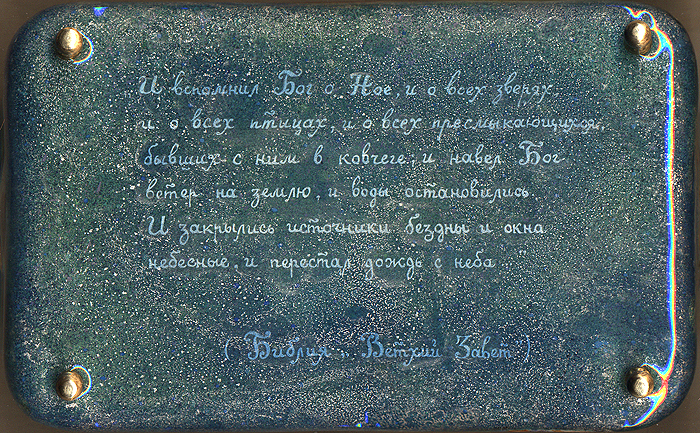 И вспомнил Бог о Ное, и о всех зверях,
и о всех птицах, и о всех пресмыкающихся,
бывших с ним в ковчеге; и навел Бог
ветер на землю, и воды остановились.
И закрылись источники бездны и окна
небесные, и перестал дождь с неба
( Библия. Ветхий Завет )